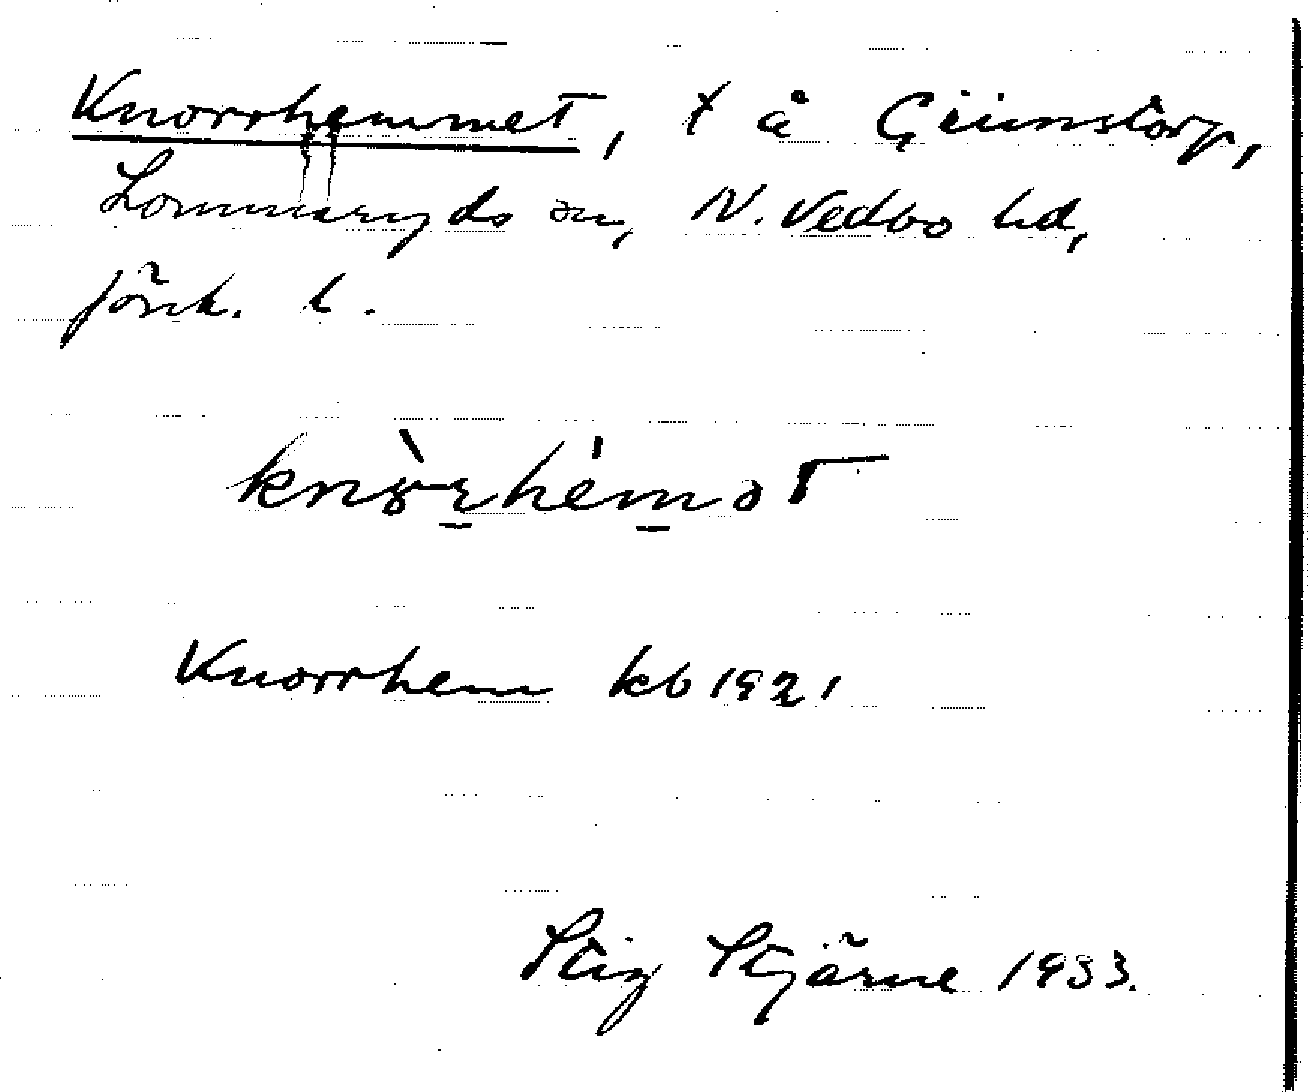 Knorrhemmet, t å Grimstorp,
Lommaryds sn, N. Vedbo hd,
Jönk. l.
Knorrhem kb 1921
Stig Stjärne 1933.